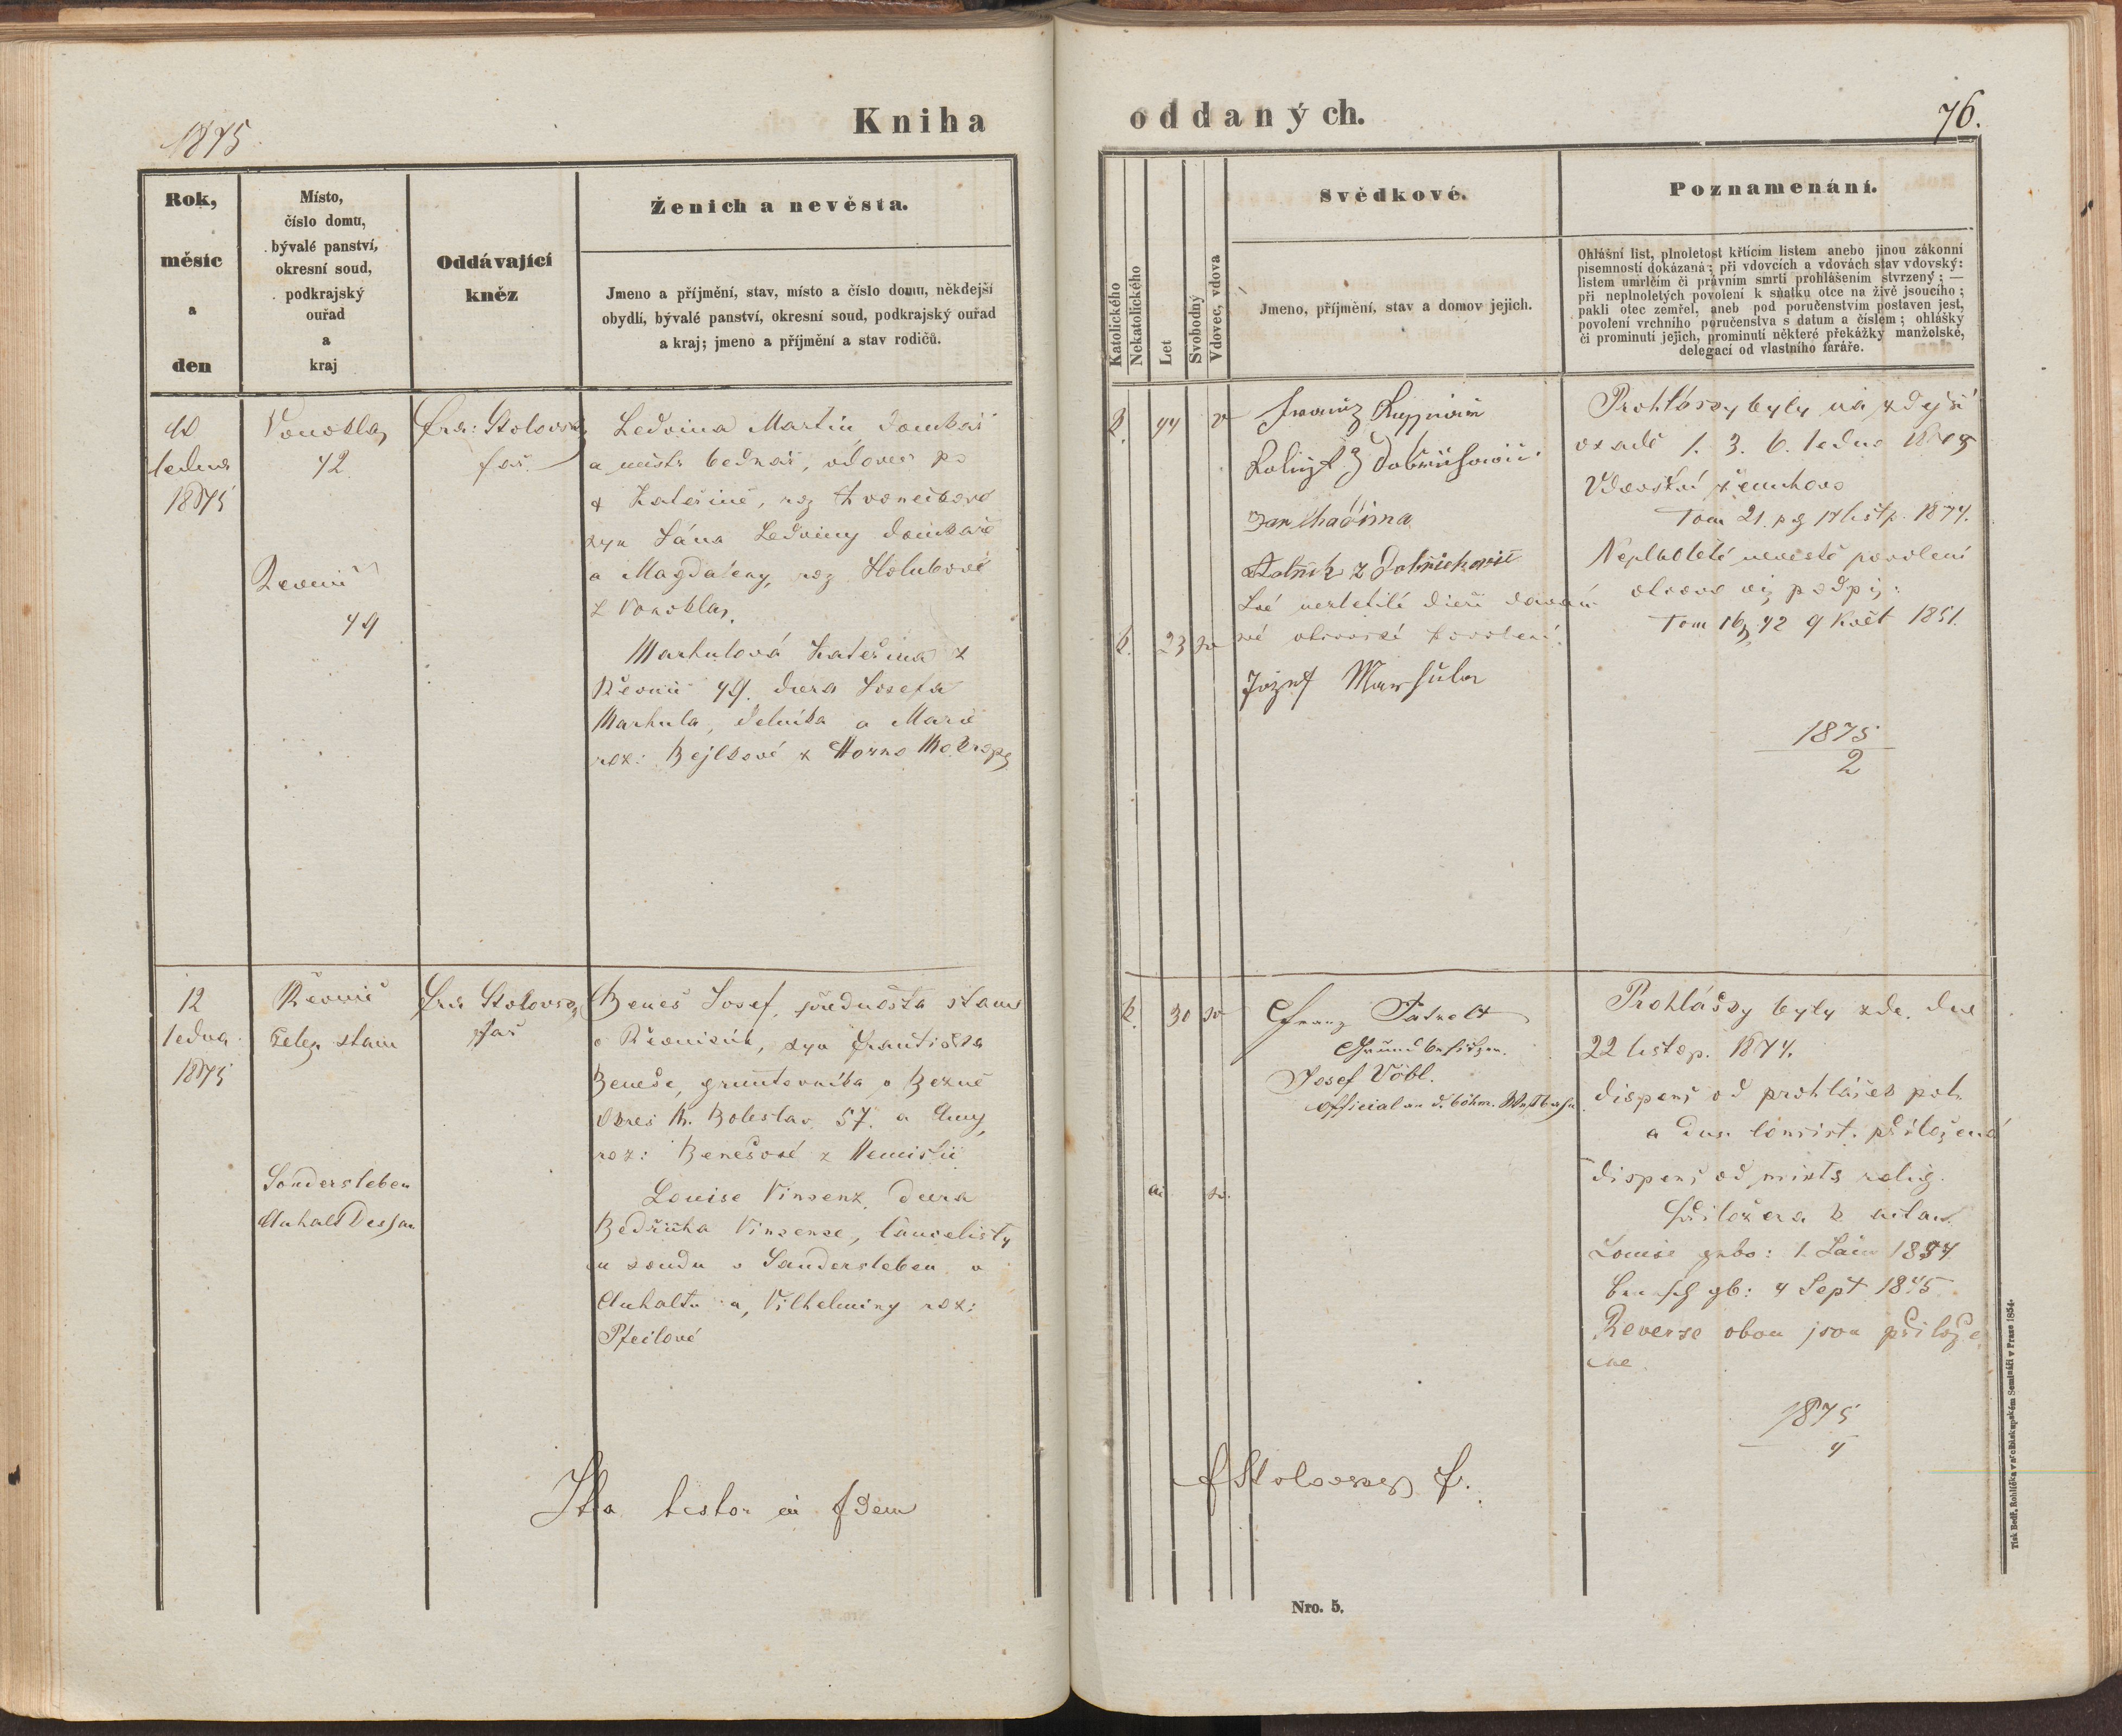 1875
Kniha
Rok,
měsíc
a
den
Místo,
číslo domu,
bývalé panství,
okresní soud,
podkrajský
ouřad
a
kraj
Oddávající
kněz
Ženich a nevěsta.
Jmeno a příjmění, stav, místo a číslo domu, někdejší
obydlí, bývalé panství, okresní soud, podkrajský ouřad
a kraj; jmeno a příjmění a stav rodičů.
ledna
1875
Vonoklas
42
Řevnič
49
Fra: Stolovský
far.
Ledvina Martin domkář
a mistr bednář, vdovec po
Kateřině, roz
syn Jána Ledviny domkaře
a Magdaleny, roz Holubové
z Vonoklas.
Markulová Kateřina z
Řevnic 49. dcera Josefa
Markula, dělníka a Marie
roz: Bejlkové z Horno Mokrops
12
ledna
1875
Řevnič
želez. stanic
Sandersleben
Anhalt Dessau
Fra Stolovský
far
Beneš Josef, přednosta stanic
v Řevnicích, syn Františka
Beneše, gruntovníka v Bezně
Okres M. Boleslav 57. a Anny,
roz: Benešové z Nemislic
Louise Vinsenz dcera
Bedřicha Vinsense, kancelisty
u soudu v Sandersleben v
Anhaltu a, Vilhelminy roz:
Pfeilové
Ita testor ad fidem
oddaných.
76.
Katolického
Nekatolického
Let
Svobodný
Vdovec, vdova
Svědkové.
Jmeno, příjmění, stav a domov jejich.
Poznamenání.
Ohlášní list, plnoletost křtícím listem anebo jinou zákonní
písemností dokázaná; při vdovcích a vdovách stav vdovský:
listem umrlčím či právním smrti prohlášením stvrzený; —
při neplnoletých povolení k sňatku otce na živě jsoucího;
pakli otec zemřel, aneb pod poručenstvím postaven jest,
povolení vrchního poručenstva s datum a číslem; ohlášky
či prominutí jejich, prominutí některé překážky manželské,
delegací od vlastního faráře.
k. 44 v
Franz
z Dobřichovic
Jan Chadima
Rolník z Dobřichovic
své nezletilé dceři dávám
k. 23 sv
své otcovské povolení.
Josef Markula
Prohlášky byly na zdejší
osadě 1. 3. 6. ledna 1875
Vdovství ženichovo
Tom 21. pg 17 listp. 1874.
Neplnoleté nevěstě povolení
otcovo viz podpis:
Tom 16 42 9 Květ 1851.
1875
2
k. 30 sv
Franz Patzelt
Grundbesitzer.
Josef Völkl.
Official an d. böhm. Westbahn
sv.
Prohlášky byly zde. dne
22 listop. 1874.
dispens od prohlášek pol.
a dux. konsist. přiložená
dispens od mixta relig.
přiložena k aktam.
Louise
4 Sept 1845
Reverse obou jsou přilože
né.
1875
4
F Stolovský f.
Nro. 5.
Tisk Bedř. Rohlíčka v arcibiskupském Semináři v Praze 1854.